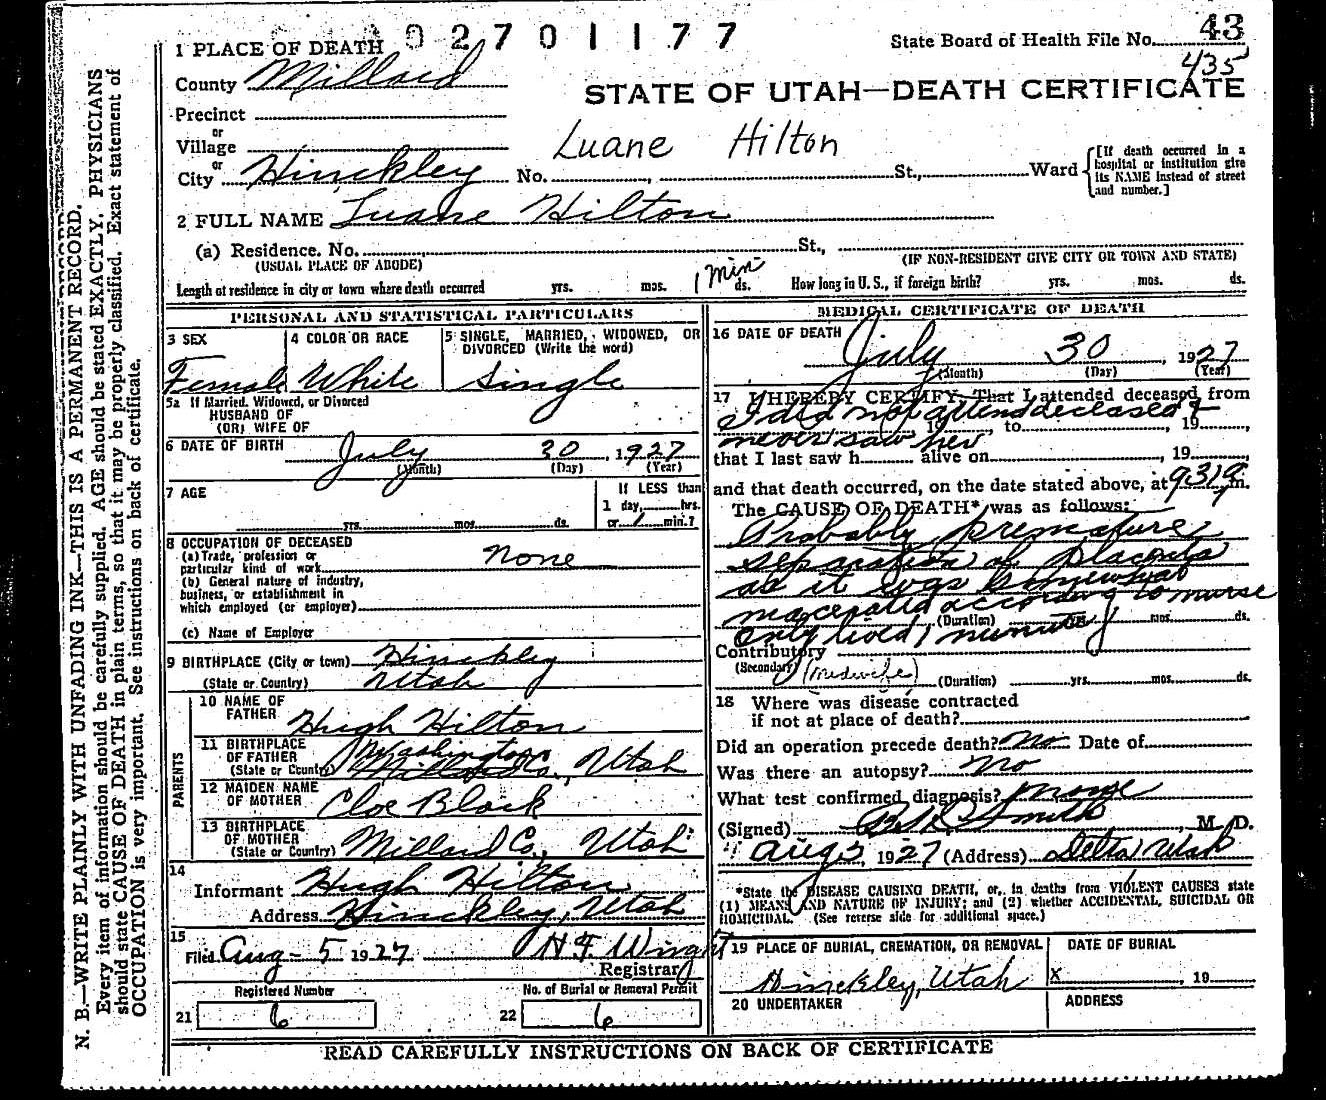 02701177
State Board of Health File No. 43
435
1 PLACE OF DEATH
County Millard
STATE OF UTAH—DEATH CERTIFICATE
Precinct
or
Village
Luane Hilton
or
City Hinckley No. , St., Ward
[If death occurred in a hospital or institution give its NAME instead of street and number.]
2 FULL NAME Luane Hilton
(a) Residence. No. St.,
(USUAL PLACE OF ABODE) (IF NON-RESIDENT GIVE CITY OR TOWN AND STATE)
Length of residence in city or town where death occurred yrs. mos. 1 min ds. How long in U. S., if foreign birth? yrs. mos. ds.
PERSONAL AND STATISTICAL PARTICULARS
3 SEX 4 COLOR OR RACE 5 SINGLE, MARRIED, WIDOWED, OR
DIVORCED (Write the word)
Female White Single
5a If Married, Widowed, or Divorced
HUSBAND OF
(OR) WIFE OF
6 DATE OF BIRTH July 30, 1927
(Month) (Day) (Year)
7 AGE If LESS than
1 day, hrs.
yrs. mos. ds. or 1 min.?
8 OCCUPATION OF DECEASED
(a) Trade, profession or
particular kind of work none
(b) General nature of industry,
business, or establishment in
which employed (or employer)
(c) Name of Employer
9 BIRTHPLACE (City or town) Hinckley
(State or Country) Utah
PARENTS
10 NAME OF
FATHER Hugh Hilton
11 BIRTHPLACE
OF FATHER Washington
(State or Country) Millard Co., Utah
12 MAIDEN NAME
OF MOTHER Cloe Black
13 BIRTHPLACE
OF MOTHER
(State or Country) Millard Co., Utah
14
Informant Hugh Hilton
Address Hinckley, Utah
15
Filed Aug - 5 1927 H F Wright
Registrar
Registered Number No. of Burial or Removal Permit
21 6 22 6
MEDICAL CERTIFICATE OF DEATH
16 DATE OF DEATH
July 30, 1927
(Month) (Day) (Year)
17 I HEREBY CERTIFY, That I attended deceased from
I did not attend deceased &
, 19 , to , 19 ,
never saw her
that I last saw h alive on , 19
and that death occurred, on the date stated above, at 931 m.
The CAUSE OF DEATH* was as follows:
Probably premature
separation of placenta
as it was somewhat
macerated according to nurse
(Duration) yrs. mos. ds.
Only lived 1 minute
Contributory
(Secondary) (Midwife) (Duration) yrs. mos. ds.
18 Where was disease contracted
if not at place of death?
Did an operation precede death? No Date of
Was there an autopsy? No
What test confirmed diagnosis?
(Signed) Smith, M. D.
Aug 3, 1927 (Address) Delta Utah
*State the DISEASE CAUSING DEATH, or, in deaths from VIOLENT CAUSES state
(1) MEANS AND NATURE OF INJURY; and (2) whether ACCIDENTAL, SUICIDAL OR
HOMICIDAL. (See reverse side for additional space.)
19 PLACE OF BURIAL, CREMATION, OR REMOVAL DATE OF BURIAL
Hinckley, Utah X , 19
20 UNDERTAKER ADDRESS
READ CAREFULLY INSTRUCTIONS ON BACK OF CERTIFICATE
N. B.—WRITE PLAINLY WITH UNFADING INK—THIS IS A PERMANENT RECORD.
Every item of information should be carefully supplied. AGE should be stated EXACTLY. PHYSICIANS
should state CAUSE OF DEATH in plain terms, so that it may be properly classified. Exact statement of
OCCUPATION is very important. See instructions on back of certificate.